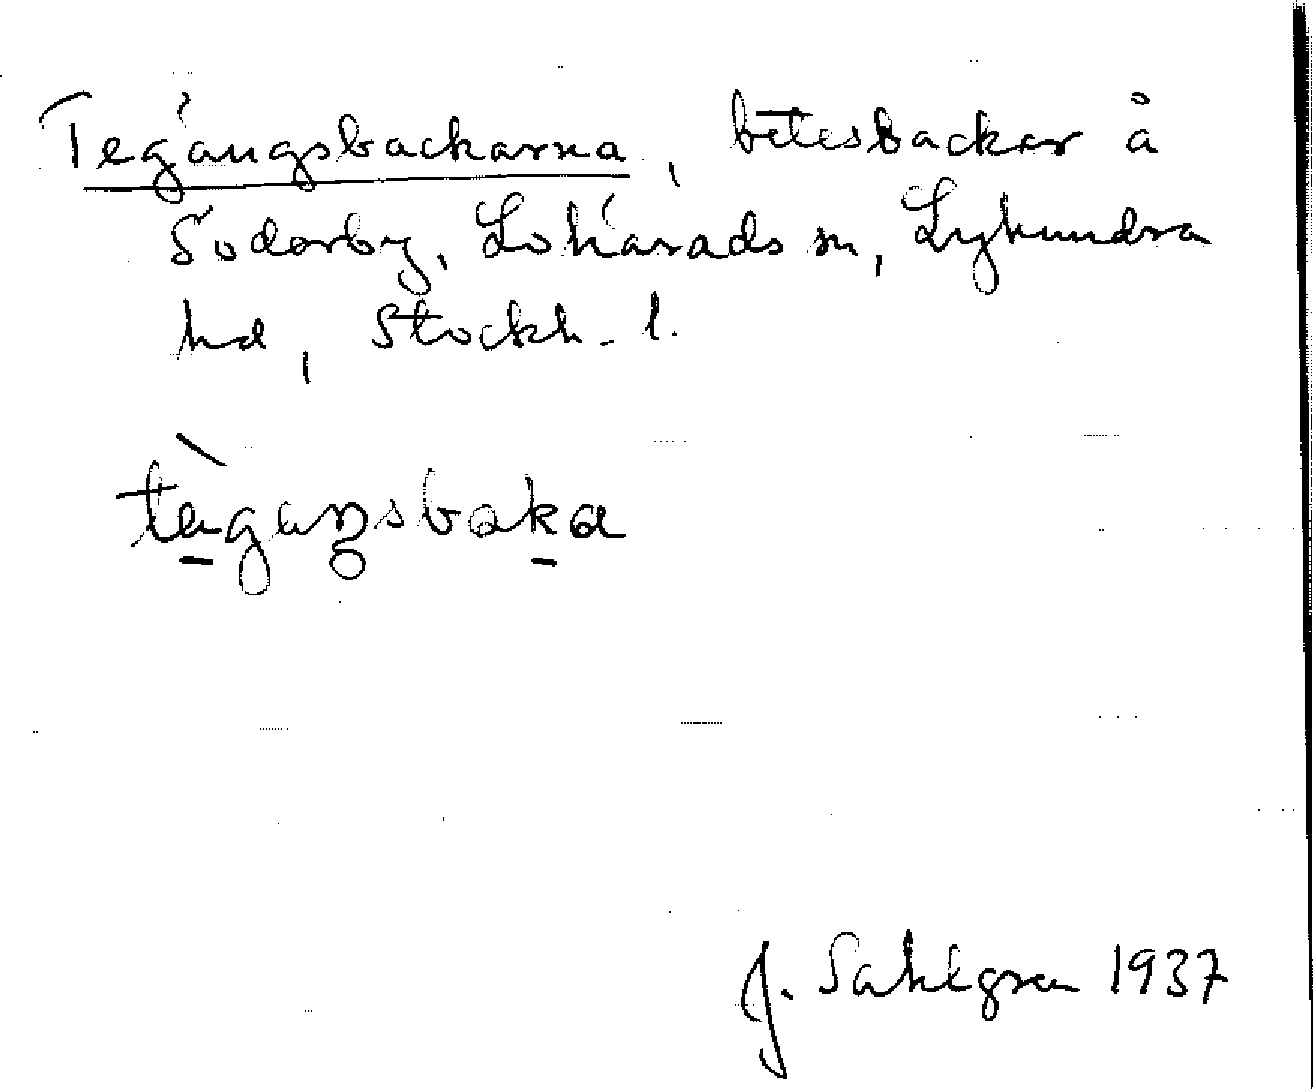 Tegångsbackarna, betesbackar å
Söderby, Lohärads sn, Lyhundra
hd, Stockh. l.
J. Sahlgren 1937